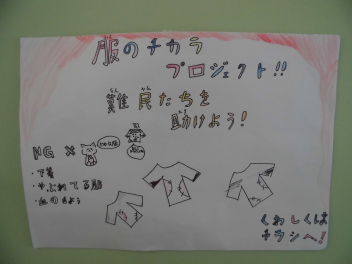 服のチカラ
プロジェクト!!
難民たちを
助けよう!
NG ×
・下着
・やぶれてる服
くわしくは
チラシへ!